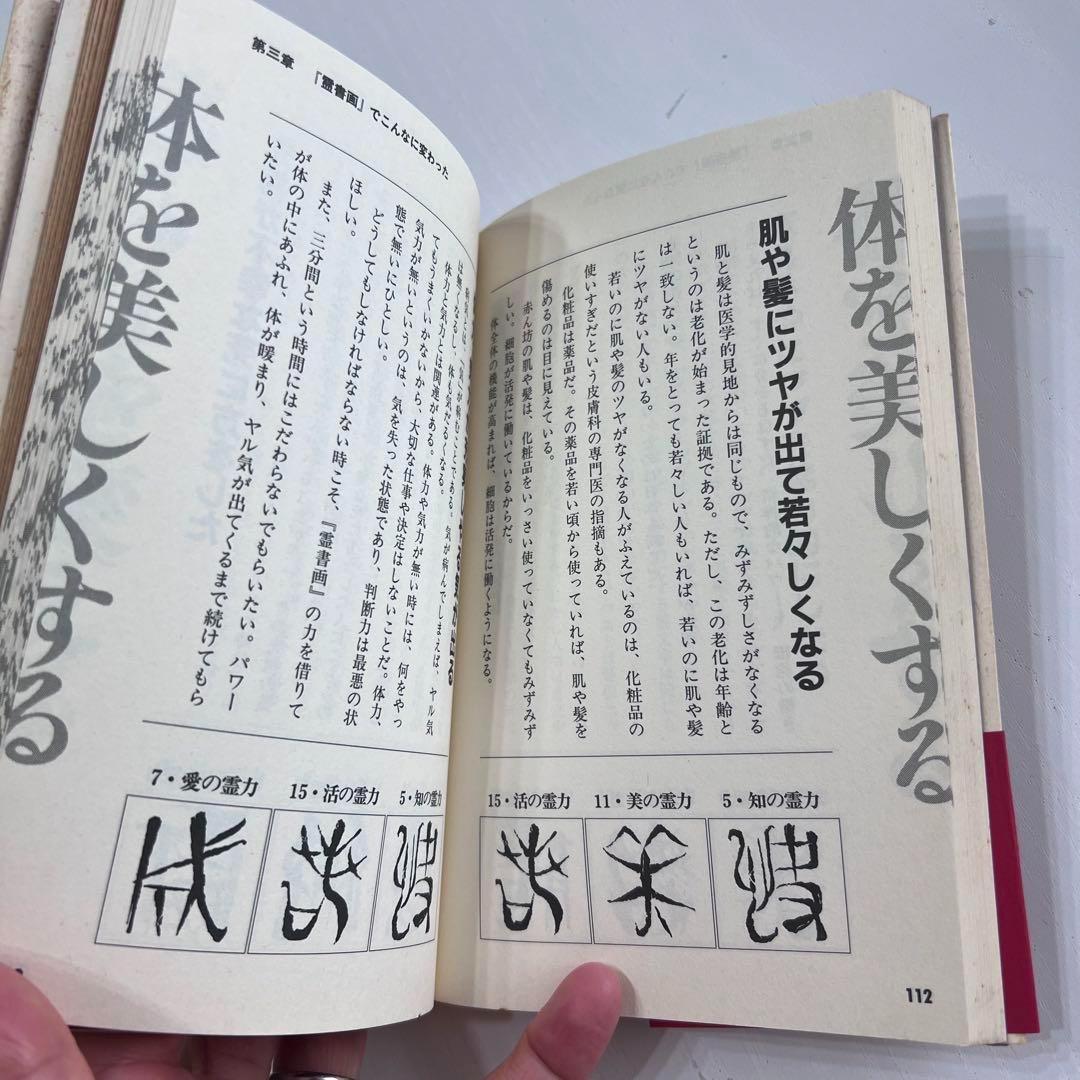 体を美しくする
肌や髪にツヤが出て若々しくなる
肌と髪は医学的見地からは同じもので、みずみずしさがなくなる
というのは老化が始まった証拠である。ただし、この老化は年齢と
は一致しない。年をとっても若々しい人もいれば、若いのに肌や髪
にツヤがない人もいる。
若いのに肌や髪のツヤがなくなる人がふえているのは、化粧品の
使いすぎだという皮膚科の専門医の指摘もある。
化粧品は薬品だ。その薬品を若い頃から使っていれば、肌や髪を
傷めるのは目に見えている。
赤ん坊の肌や髪は、化粧品をいっさい使っていなくてもみずみず
しい。細胞が活発に働いているからだ。
体全体の機能が高まれば、細胞は活発に働くようになる。
5・知の霊力
11・美の霊力
15・活の霊力
112
第三章 「霊書画」でこんなに変わった
は無くなるし、体も気だるくなる。
てもうまくいかないから、大切な仕事や決定はしないことだ。体力、
体力と気力とは関連がある。体力や気力が無い時には、何をやっ
気力が無いというのは、気を失った状態であり、判断力は最悪の状
態で無いにひとしい。
どうしてもしなければならない時こそ、『霊書画』の力を借りて
ほしい。
また、三分間という時間にはこだわらないでもらいたい。パワー
が体の中にあふれ、体が暖まり、ヤル気が出てくるまで続けてもら
いたい。
5・知の霊力
15・活の霊力
7・愛の霊力
体を美しくする